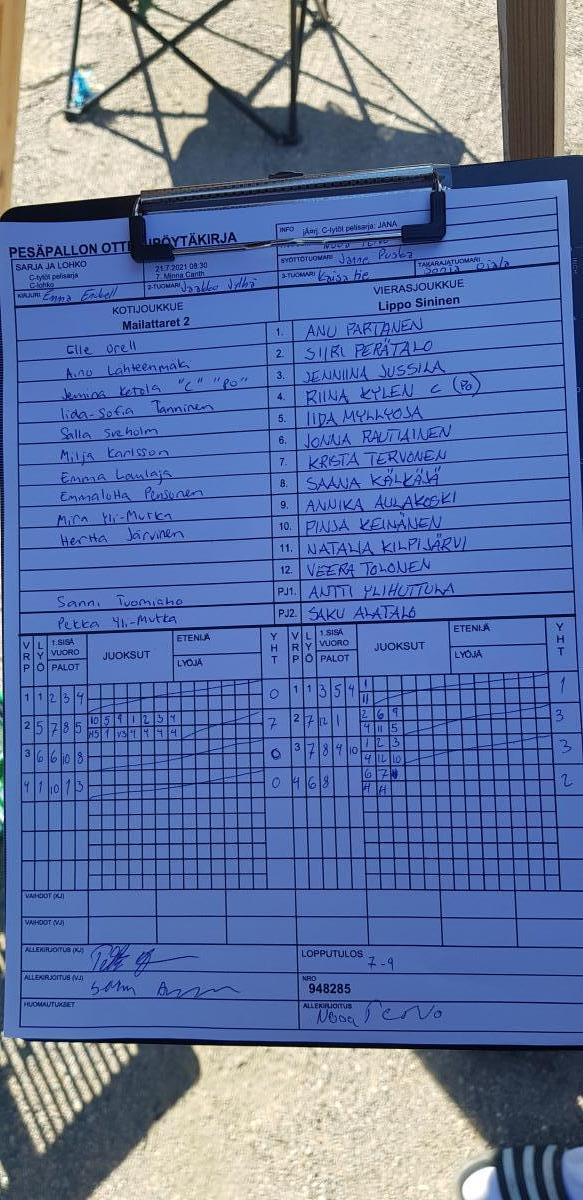 PESÄPALLON OTTE
PÖYTÄKIRJA
INFO jÄrrj. C-tytöt pelisarja: JANA
SARJA JA LOHKO
C-tytöt pelisarja
C-lohko
21.7.2021 08:30
7. Minna Canth
SYÖTTÖTUOMARI Janne Puska
KIRJURI Enna
2-TUOMARI Jaakko
3-TUOMARI Kaisa
TAKARAJATUOMARI
KOTIJOUKKUE
Mailattaret 2
VIERASJOUKKUE
Lippo Sininen
Elle Orell 1. ANU PARTANEN
Ainu Lähteenmäki 2. SIIRI PERÄTALO
Jemina Ketola "C" "PO" 3. JENNIINA JUSSILA
Iida-Sofia Tanninen 4. RIINA KYLEN C (PO)
Salla Sveholm 5. IIDA MYLLYOJA
Milja Karlsson 6. JONNA RAUTIAINEN
Emma Laulaja 7. KRISTA TERVONEN
Emmalotta Pensonen 8. SAANA KÄLKÄJÄ
Mira Yli-Mutka 9. ANNIKA AULAKOSKI
Hertta Järvinen 10. PINJA KEINÄNEN
11. NATALIA KILPIJÄRVI
12. VEERA TOLONEN
Sanni Tuomiaho PJ1. ANTTI YLIHUTTULA
Pekka Yli-Mutka PJ2. SAKU ALATALO
VRP LYÖ 1.SISÄ VUORO PALOT JUOKSUT ETENIJÄ LYÖJÄ YHT VRP LYÖ 1.SISÄ VUORO PALOT JUOKSUT ETENIJÄ LYÖJÄ YHT
1 1 2 3 4 0 1 1 3 5 4 1 1
11
2 5 7 8 5 10 5 9 1 2 3 4 7 2 7 12 1 2 6 9 3
4 11 5
3 6 6 10 8 0 3 7 8 9 10 1 2 3 3
4 12 10
4 1 10 1 3 0 4 6 8 6 7 2
4 4
VAIHDOT (KJ)
VAIHDOT (VJ)
ALLEKIRJOITUS (KJ)
LOPPUTULOS 7-9
ALLEKIRJOITUS (VJ)
NRO
948285
HUOMAUTUKSET
ALLEKIRJOITUS Nooa Tervo